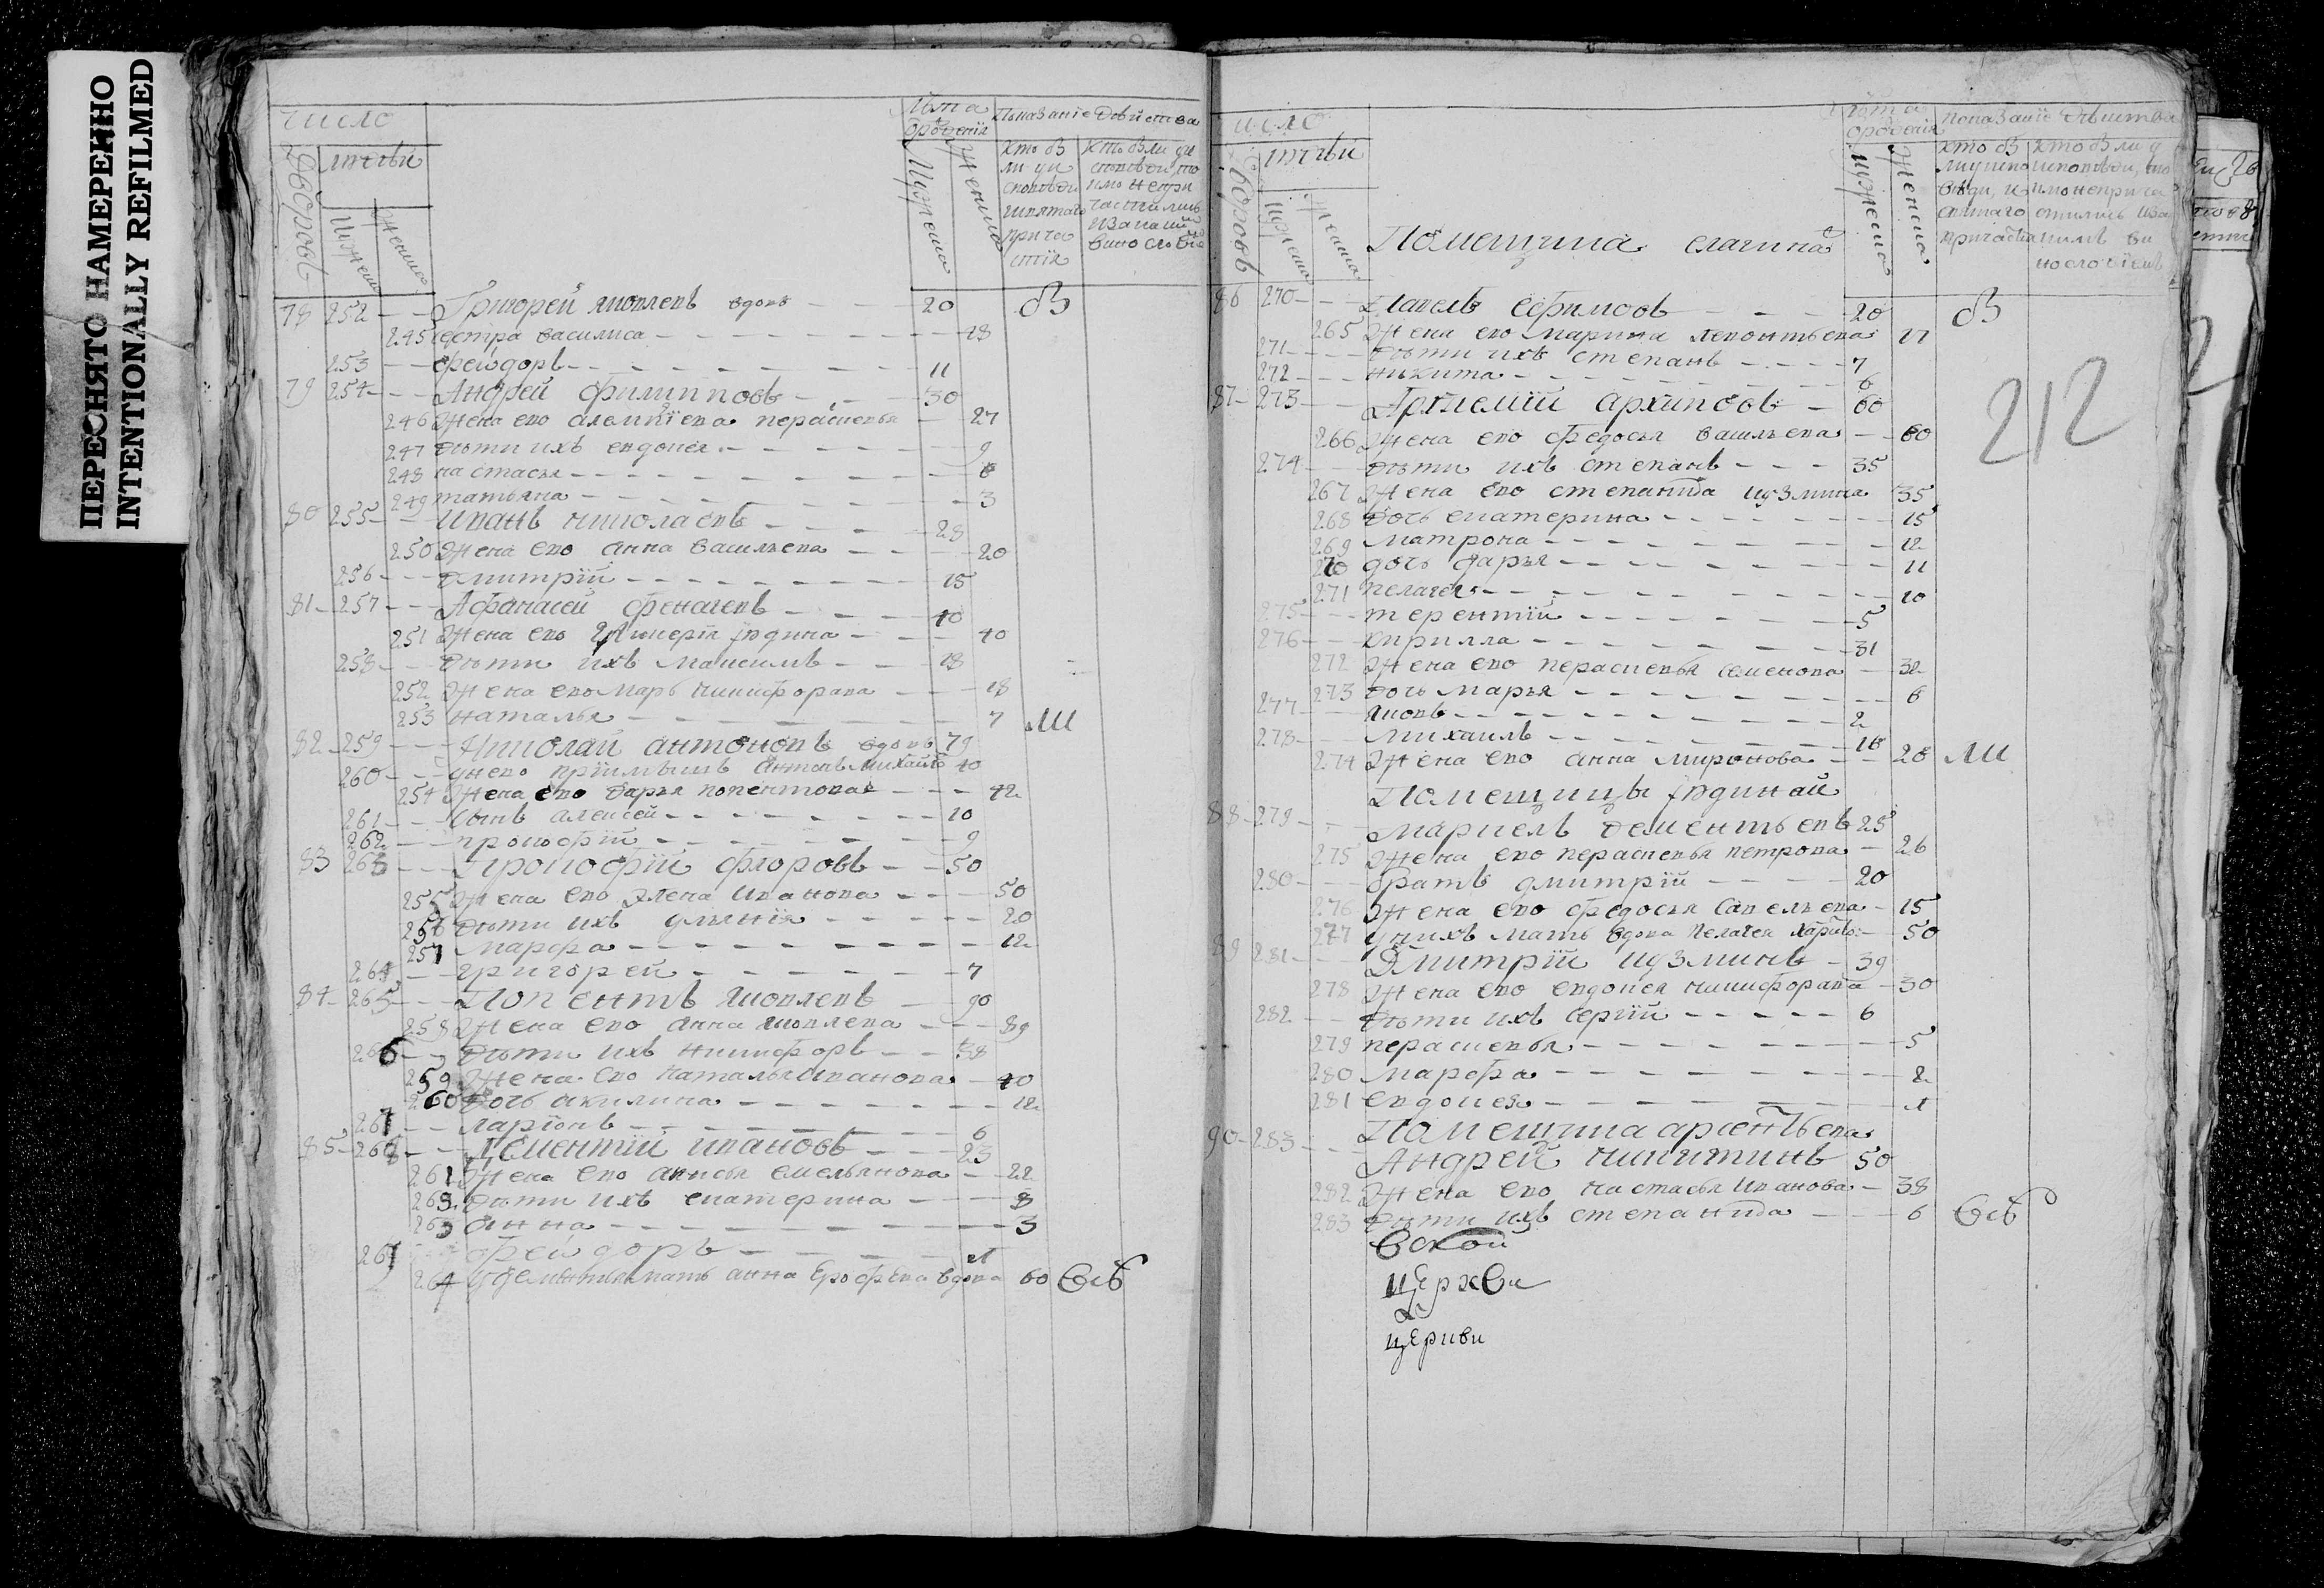 ПЕРЕСНЯТО НАМЕРЕННО
INTENTIONALLY REFILMED
число
лѣта
ѿрожденїя
показанїе дѣйства
дворовъ
людей
мужеска
женска
мужеска
женска
кто бы
ли у и
сповѣди
исвятаго
прича
стїя
кто были у и
сповѣди, то
кмо непри
частились
и закаки
вино словїе
78 252 - - Григорей яковлевъ вдовъ - - - 20 бы
245 сестра василиса - - - 18
253 - - фейдоръ - - - 11
79 254 - - Андрей филипповъ - - - 30
246 жена ево алемпїева параскевья - 27
247 дѣти ихъ евдокея - - - 9
248 настасья - - - 6
249 татьяна - - - 3
80 255 - - иванъ николаевъ - - - 28
250 жена ево анна васильева - - - 20
256 - - дмитрїй - - - 15
81 257 - - Афанасей - - - 40
251 жена ево - - - 40
258 - - дѣти ихъ максимъ - - - 18
252 жена ево марь никифорава - - - 18
253 наталья - - - 7 ли
82 259 - - Николай антоновъ вдовъ 79
260 - - унево прїимышъ антонъ михайло 40
254 жена ево дарья - - - 42
261 - - сынъ алексей - - - 10
262 - - прокофїй - - - 9
83 263 - - Прокофїй флоровъ - - 50
255 жена ево элена иванова - - - 50
256 дѣти ихъ улянїя - - - 20
257 марфа - - - 12
264 - - григорей - - - 7
84 265 - - яковлевъ - 90
258 жена ево анна яковлева - - - 89
266 - - дѣти ихъ никифоръ - - 38
259 жена ево наталья иванова - 40
260 дочь акилина - - - 12
267 - - ларїонъ - - - 6
85 268 - - Дементїй ивановъ - - - 23
261 жена ево анисья емельянова - - 22
262 дѣти ихъ екатерина - - - 8
263 анна - - - 3
269 фейдоръ - - - 1
264 у дементья мать анна ерофѣева вдова 60
число
лѣта
ѿрожденїя
показанїе дѣйства
дворовъ
людей
мужеска
женска
мужеска
женска
кто бы
ли у испо
вѣди, и
святаго
причастїя
кто были у
исповѣди, то
кмо неприча
стились и за
кимъ ви
нословїемъ
Помещика елагина
86 270 - - Павелъ ефимовъ - - - 20 бы
265 жена ево марина леонтьева 17
271 - - дѣти ихъ степанъ - - - 7
272 - - никита - - - 6
87 273 - - Артемїй архиповъ - 60
266 жена ево федосья васильева - - 60
274 - - дѣти ихъ степанъ - - - 35
267 жена ево степанида кузмина 35
268 дочь екатерина - - - 15
269 матрона - - - 12
270 дочь дарья - - - 11
271 пелагея - - - 10
275 - - терентїй - - - 5
276 - - кирилла - - - 31
272 жена ево параскевья семенова - 32
273 дочь марья - - - 6
277 - - яковъ - - - 2
278 - - михаилъ - - - 18
274 жена ево анна миронова - - 20 ли
Помещицы юдиной
88 279 - - Маркелъ дементьевъ 25
275 жена ево параскевья петрова - 26
280 - - братъ дмитрїй - - - 20
276 жена ево федосья савельева - 15
277 у нихъ мать вдова пелагея харито: - 50
89 281 - - Дмитрїй кузминъ - 39
278 жена ево евдокея никифорава - 30
282 - - дѣти ихъ сергїй - - - 6
279 параскевья - - - 5
280 марфа - - - 2
281 евдокея - - - 1
Помещика арсентьева
90 283 - - Андрей никитинъ 50
282 жена ево настасья иванова - 38
283 дѣти ихъ степанида - - - 6
церкви
церкви
212